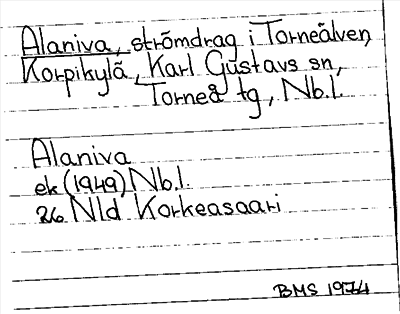 Alaniva, strömdrag i Torneälven,
Korpikylä, Karl Gustavs sn,
Torneå tg, Nb.l.
Alaniva
ek (1949) Nb.l.
26 Nld Korkeasaari
BMS 1974